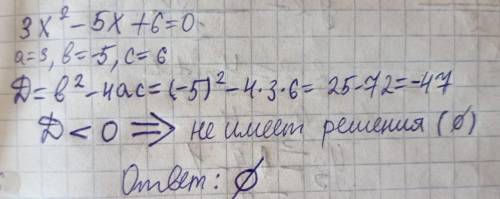 3x² - 5x + 6 = 0
a = 3, b = -5, c = 6
D = b² - 4ac = (-5)² - 4·3·6 = 25 - 72 = -47
D < 0 ⟹ не имеет решения (∅)
Ответ: ∅